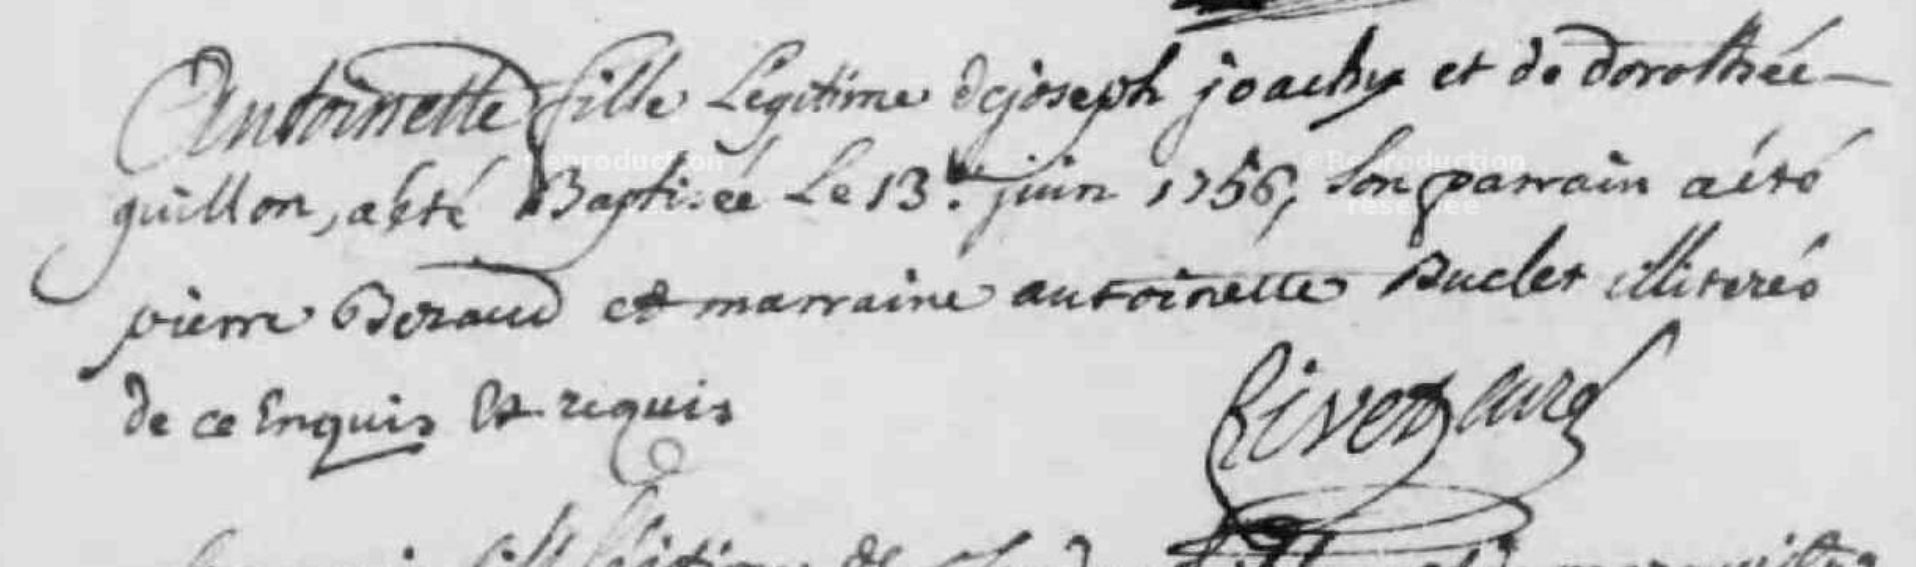 Antoinette fille Legitime de joseph joachy et de dorothée
guillon, a été Baptisée Le 13e. juin 1756, Son parrain a été
pierre Beraud et marraine antoinette Buclet illiterés
de ce Enquis Et requis
Rivet curé
©Reproduction
réservée